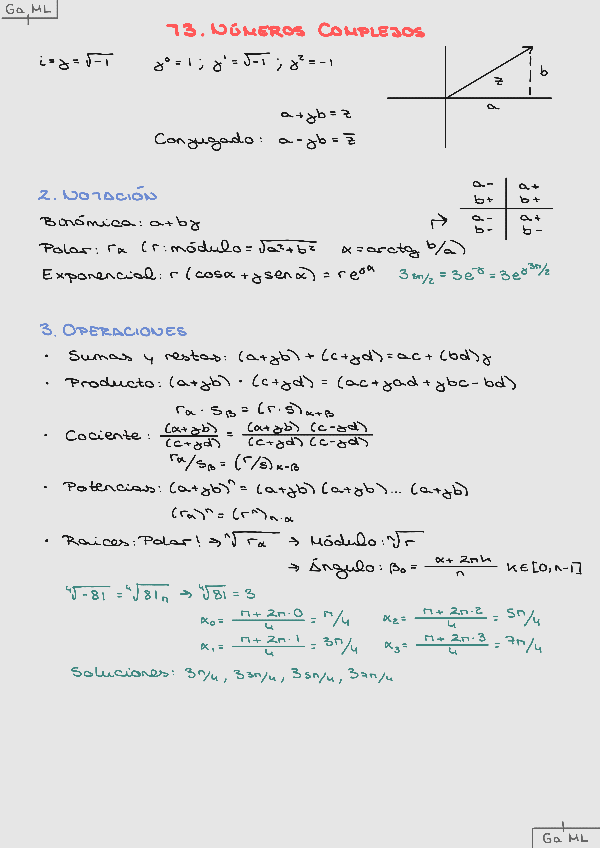 Ga ML
73. NÚMEROS COMPLEJOS
i = j = √-1   j⁰ = 1 ; j¹ = √-1 ; j² = -1
z   b
a
a + jb = z
Conjugado: a - jb = z̅
2. NOTACIÓN
a-   a+
b+   b+
a-   a+
b-   b-
Binómica: a + bj
Polar: rα (r: módulo = √a²+b²   α = arctg b/a)
Exponencial: r (cosα + j senα) = r e^jα   3 3π/2 = 3e^-j = 3e^j3π/2
3. OPERACIONES
· Sumas y restas: (a+jb) + (c+jd) = ac + (bd)j
· Producto: (a+jb) · (c+jd) = (ac + jad + jbc - bd)
rα · sβ = (r·s)α+β
· Cociente: (a+jb)/(c+jd) = (a+jb)(c-jd)/(c+jd)(c-jd)
rα/sβ = (r/s)α-β
· Potencias: (a+jb)ⁿ = (a+jb)(a+jb)... (a+jb)
(rα)ⁿ = (rⁿ)n·α
· Raices: Polar! → ⁿ√rα → Módulo: ⁿ√r
→ Ángulo: β₀ = (α + 2πk)/n   k ∈ [0, n-1]
⁴√-81 = ⁴√81π → ⁴√81 = 3
α₀ = (π + 2π·0)/4 = π/4   α₂ = (π + 2π·2)/4 = 5π/4
α₁ = (π + 2π·1)/4 = 3π/4   α₃ = (π + 2π·3)/4 = 7π/4
Soluciones: 3π/4, 3 3π/4, 3 5π/4, 3 7π/4
Ga ML